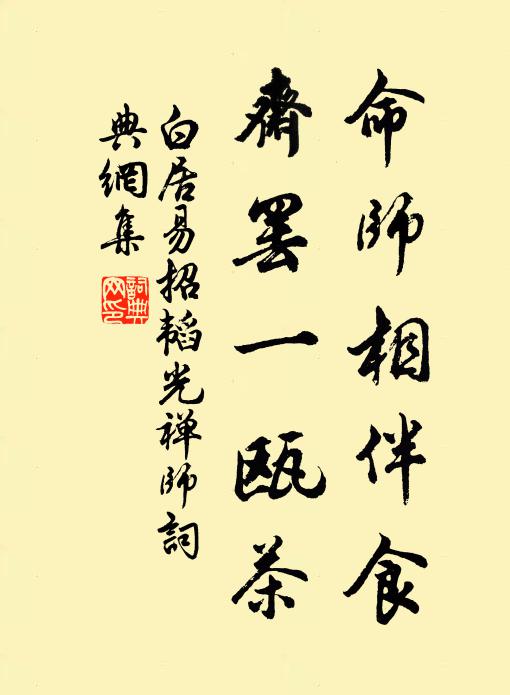 命師相伴食
齋罷一甌茶
白居易招韜光禅師詞
典網集
詞典網印